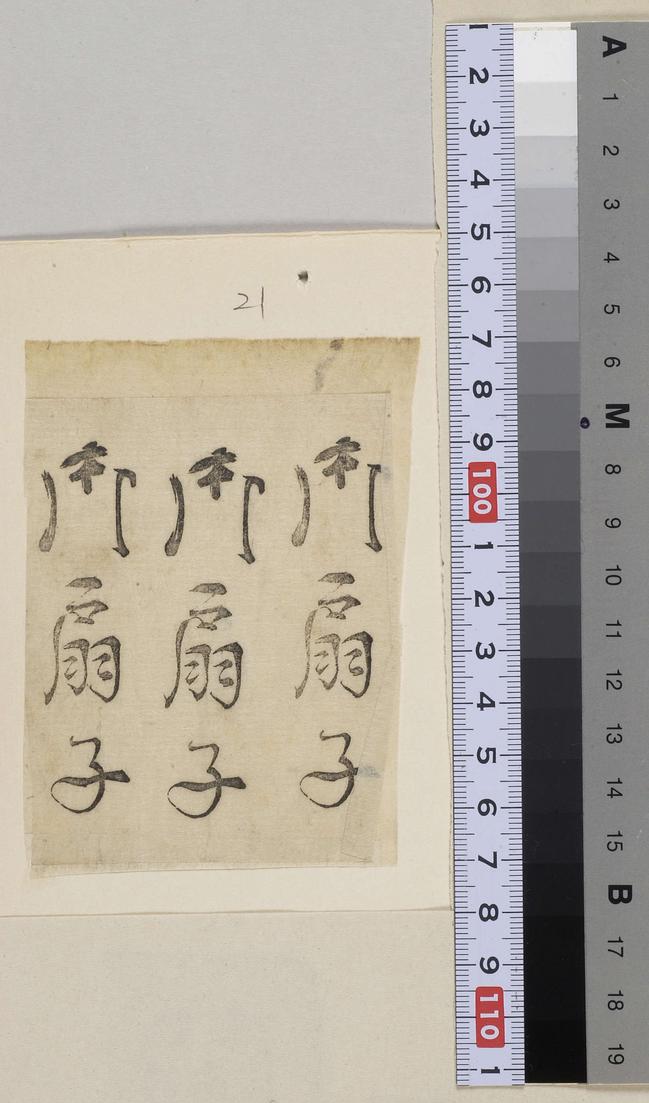 21
御扇子
御扇子
御扇子
1 2 3 4 5 6 7 8 9 100 1 2 3 4 5 6 7 8 9 110 1
A 1 2 3 4 5 6 M 8 9 10 11 12 13 14 15 B 17 18 19